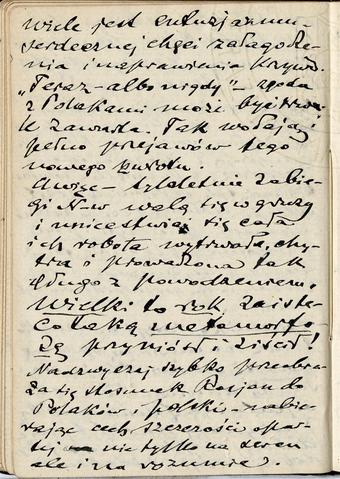 wiele jest entuzjazmu,
serdecznej chęci załagodze-
nia i naprawienia krzywd.
„Teraz - albo nigdy" - zgoda
z Polakami może być
zawarta. Tak wołają i
pełno przejawów tego
nowego zwrotu.
A więc - tyloletnie zabie-
gi N-w walą się w gruzy
i unicestwia się cała
ich robota wytrwała, chy-
tra i prowadzona tak
długo z powodzeniem.
Wielki to rok, zaiste -
co taką metamorfo-
zę przyniósł i ziścił!
Nadzwyczaj szybko przeobra-
ża się stosunek Rosjan do
Polaków i polski - nabie-
rając cech szczerości opar-
tej nie tylko na
ale i na rozumie.